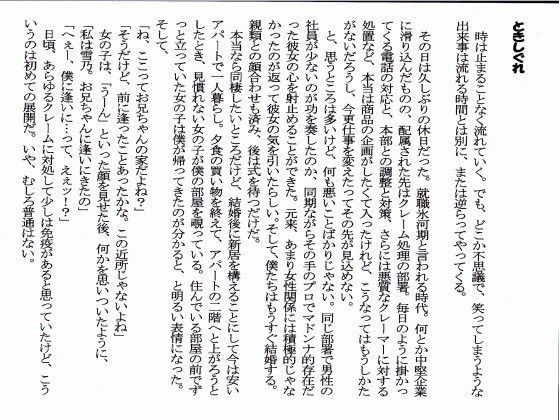 ときしぐれ
時は止まることなく流れていく。でも、どこか不思議で、笑ってしまうような
出来事は流れる時間とは別に、または逆らってやってくる。
その日は久しぶりの休日だった。就職氷河期と言われる時代。何とか中堅企業
に滑り込んだものの、配属された先はクレーム処理の部署。毎日のように掛かっ
てくる電話の対応と、本部との調整と対策、さらには悪質なクレーマーに対する
処置など、本当は商品の企画がしたくて入ったけれど、こうなってはもうしかた
がないだろうし、今更仕事を変えたってその先が見込めない。
と、思うところは多いけど、何も悪いことばかりじゃない。同じ部署で男性の
社員が少ないのが功を奏したのか、同期ながらその手のプロでマドンナ的存在だ
った彼女の心を射止めることができた。元来、あまり女性関係には積極的じゃな
かったのが返って彼女の気を引いたらしい。そして、僕たちはもうすぐ結婚する。
親類との顔合わせも済み、後は式を待つだけだ。
本当なら同棲したいところだけど、結婚後に新居を構えることにして今は安い
アパートで一人暮らし。夕食の買い物を終えて、アパートの二階へと上がろうと
したとき、見慣れない女の子が僕の部屋を覗っている。住んでいる部屋の前でず
っと立っていた女の子は僕が帰ってきたのが分かると、と明るい表情になった。
そして、
「ね、ここってお兄ちゃんの家だよね？」
「そうだけど、前に逢ったことあったかな。この近所じゃないよね」
女の子は、「うーん」といった顔を見せた後、何かを思いついたように、
「私は雪乃。お兄ちゃんに逢いにきたの」
「へぇー、僕に逢いに…って、えぇッ！？」
日頃、あらゆるクレームに対処して少しは免疫があると思っていたけど、こう
いうのは初めての展開だ。いや、むしろ普通はない。